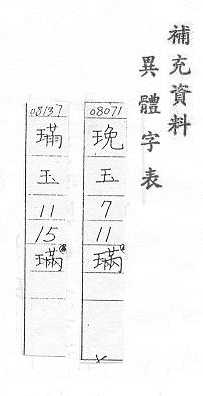 補充資料
異體字表
08071
玉
7
11
璊
08137
玉
11
15
璊